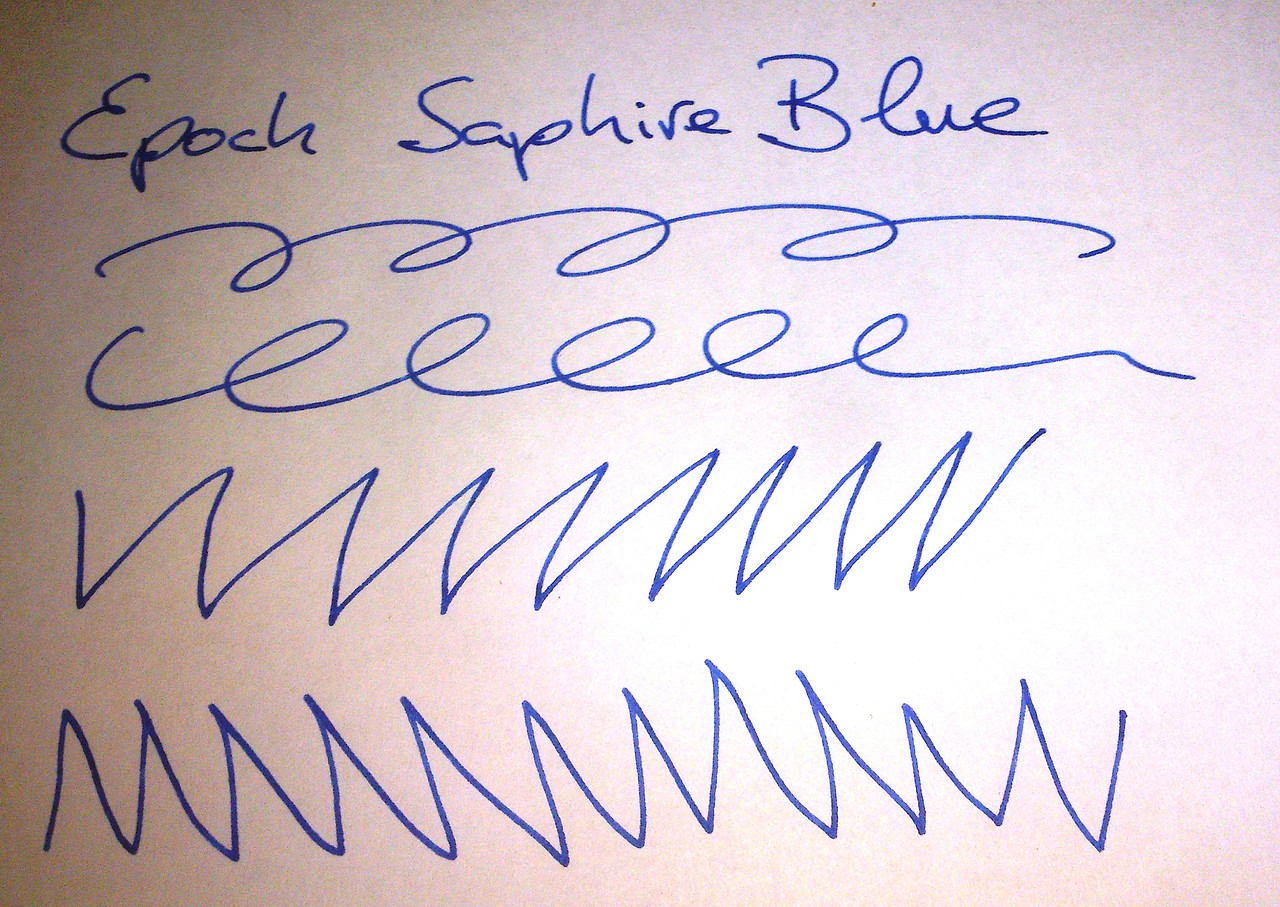 Epoch Saphire Blue